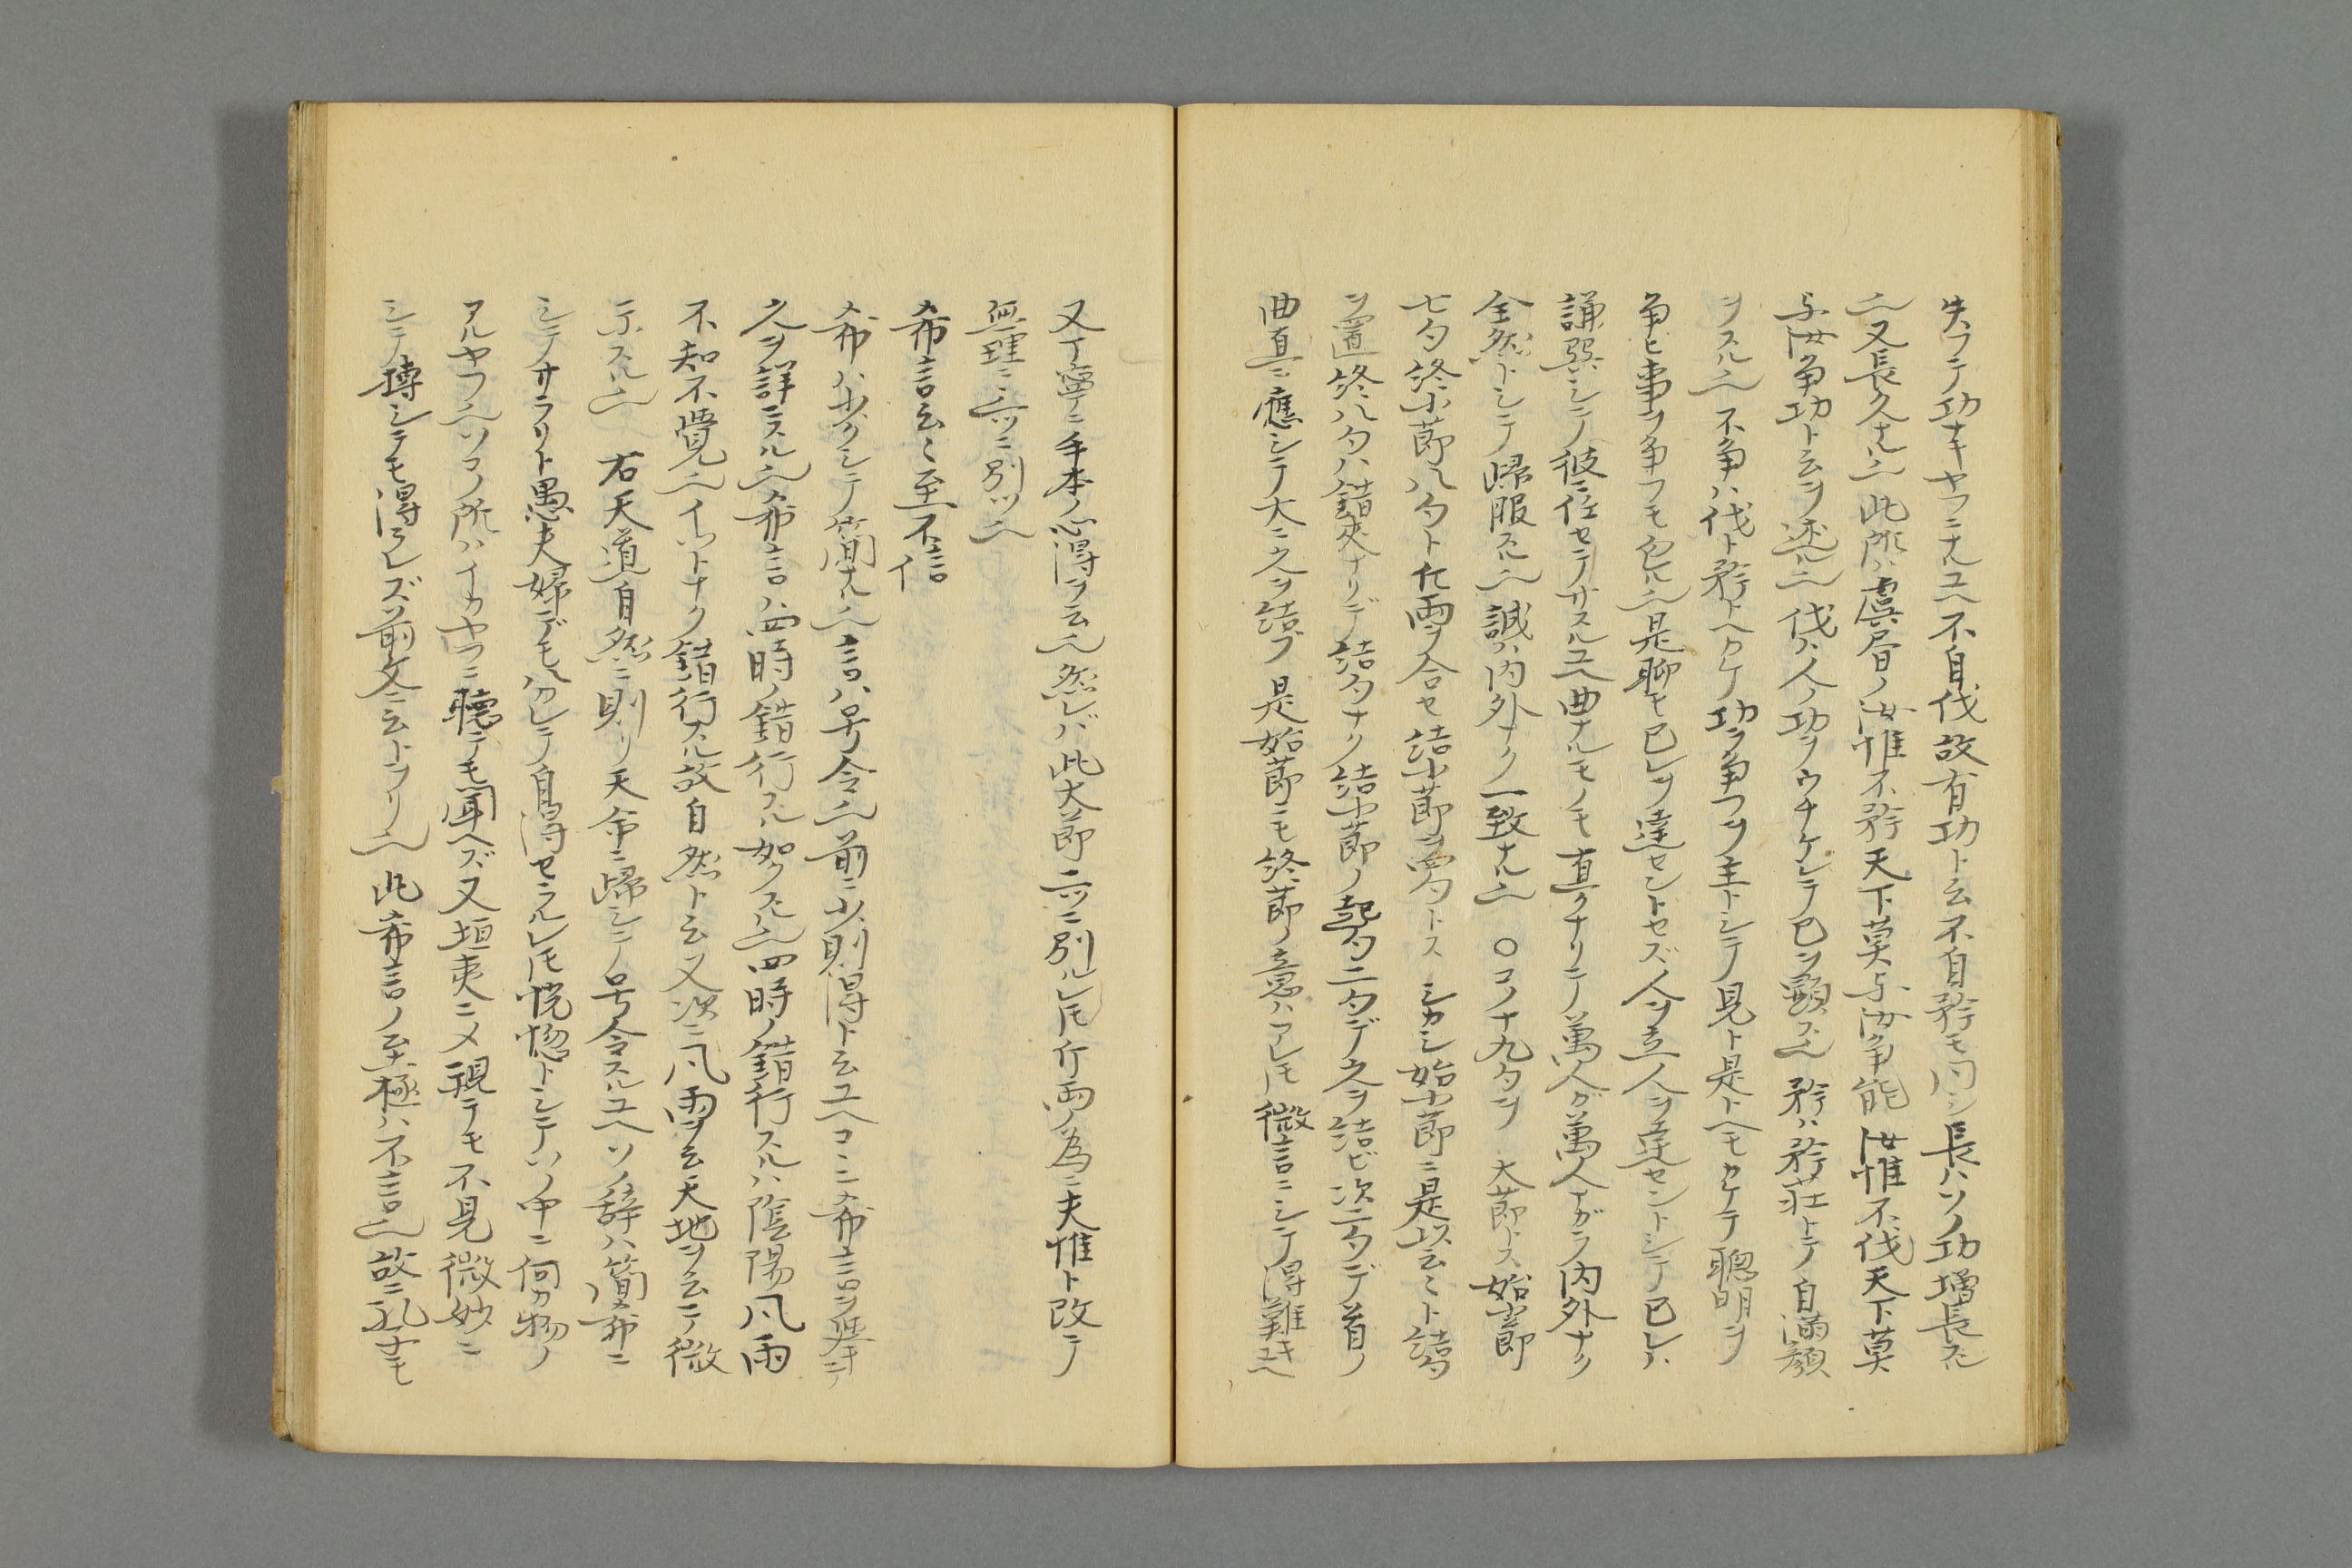 失フテ功ナキヤフニナルユヘ不自伐故有功ト云不自矜モ同シ長ハソノ功増長スル
也又長久ナル也此所ハ虞書ノ汝惟不矜天下莫与汝争能汝惟不伐天下莫
与汝争功ト云ヲ述ル也伐ハ人ノ功ヲウチケシテ已ヲ顕ス也矜ハ矜荘トテ自満顔
ヲスル也不争ハ伐ト矜トヘカケ功ヲ争フヲ主トシテ見ト是トヘモカケテ聰明ヲ
争ヒ事ヲ争フモ包ル也是聊モ已レヲ達セントセズ人ヲ立人ヲ達セントシテ已レハ
謙巽シテ彼ニ任セテサスルユヘ曲ナルモノモ直クナリテ萬人ガ萬人ナガラ内外ナク
全然トシテ帰服スル也誠ハ内外ナク一致ナル也 〇コノ十九句ヲ 大節トス始小節
七句終小節八句ト冇両ヲ合セ結小節ヲ四句トス シカシ始小節ニ是以云〻ト結句
ヲ置終八句ハ錯綜ナリデ結句ナク結小節ノ起句二句デ之ヲ結ビ次二句デ首ノ
曲直ニ應シテ大ニ之ヲ結ブ 是始節ニモ終節ノ意ハアレ𪜈微言ニシテ得難キユヘ
又丁寧ニ手本ノ心得ヲ云也然レバ此大節二ツニ別ルレ𪜈冇両ノ為ニ夫惟ト改テ
無理ニ二ツニ別ツ也
希言云〻至不信
希ハ少クシテ簡ナル也言ハ号令也前ニ少則得ト云ユヘコヽニ希言ヲ挙テ
之ヲ詳ニスル也希言ハ四時ノ錯行スル如クスル也四時ノ錯行スルハ陰陽凡雨
不知不覺也イツトナク錯行スル故自然ト云又次ニ凡雨ヲ云天地ヲ云テ微
示スル也 右天道自然ニ則リ天命ニ帰シテ号令スルユヘソノ辞ハ簡希ニ
シテサラリト愚夫婦デモハカレテ自得セラルレ𪜈恍惚トシテソノ中ニ何カ物ノ
アルヤフ也ソコノ所ハイカヤフニ聴テモ聞ヘズ又垣夷ニメ視テモ不見微妙ニ
シテ摶シテモ得ラレズ前文ニ云トヲリ也此希言ノ至極ハ不言也故ニ孔子モ